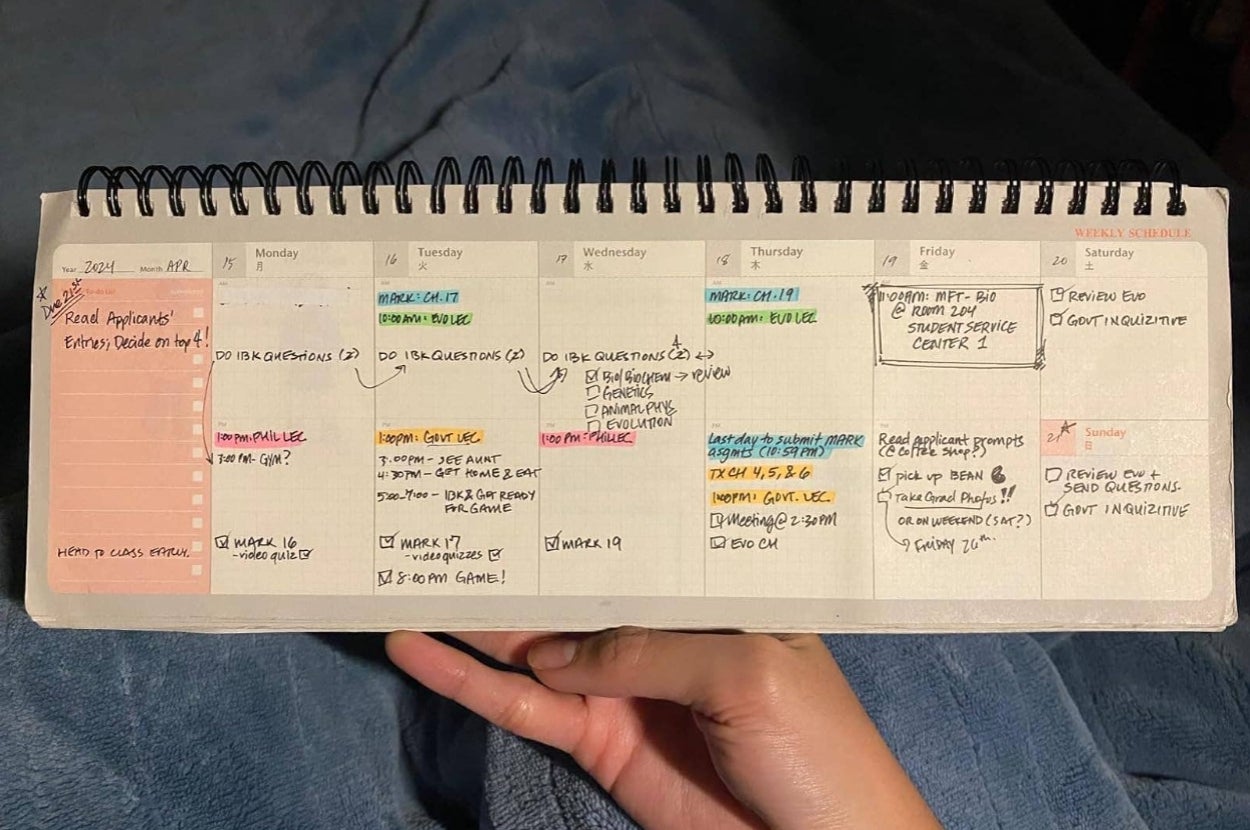 WEEKLY SCHEDULE
Year 2024 Month APR
* Due 21st
To-do List
Read Applicants'
Entries; Decide on top 4!
HEAD TO CLASS EARLY.
15 Monday
月
DO IBK QUESTIONS (2)
PM
1:00 PM: PHIL LEC
3:00 PM- GYM?
☑ MARK 16
-video quiz ☑
16 Tuesday
火
AM
MARK: CH. 17
10:00 AM: EVO LEC
DO IBK QUESTIONS (2)
PM
1:00PM: GOVT LEC
3:00PM- SEE AUNT
4:30PM- GET HOME & EAT
5:00-7:00- IBK & GET READY
FOR GAME
☑ MARK 17
-video quizzes ☑
☑ 8:00 PM GAME!
17 Wednesday
水
AM
4
DO IBK QUESTIONS (2) ↔
☑ BIO/BIOCHEM → review
☐ GENETICS
☐ ANIMAL PHYS
☐ EVOLUTION
PM
1:00 PM: PHIL LEC
☑ MARK 19
18 Thursday
木
AM
MARK: CH. 19
10:00 AM: EVO LEC
PM
Last day to submit MARK
asgmts (10:59 PM)
TX CH 4, 5, & 6
1:00PM: GOVT. LEC
☑ Meeting @ 2:30PM
☑ EVO CH
19 Friday
金
11:00AM: MFT-BIO
@ ROOM 204
STUDENT SERVICE
CENTER 1
Read Applicant prompts
(@ coffee shop?)
☑ pick up BEAN
☐ Take Grad Photos!!
OR ON WEEKEND (SAT?)
FRIDAY 26th.
20 Saturday
土
☑ REVIEW EVO
☑ GOVT INQUIZITIVE
21 Sunday
日
☐ REVIEW EVO +
SEND QUESTIONS.
☑ GOVT INQUIZITIVE